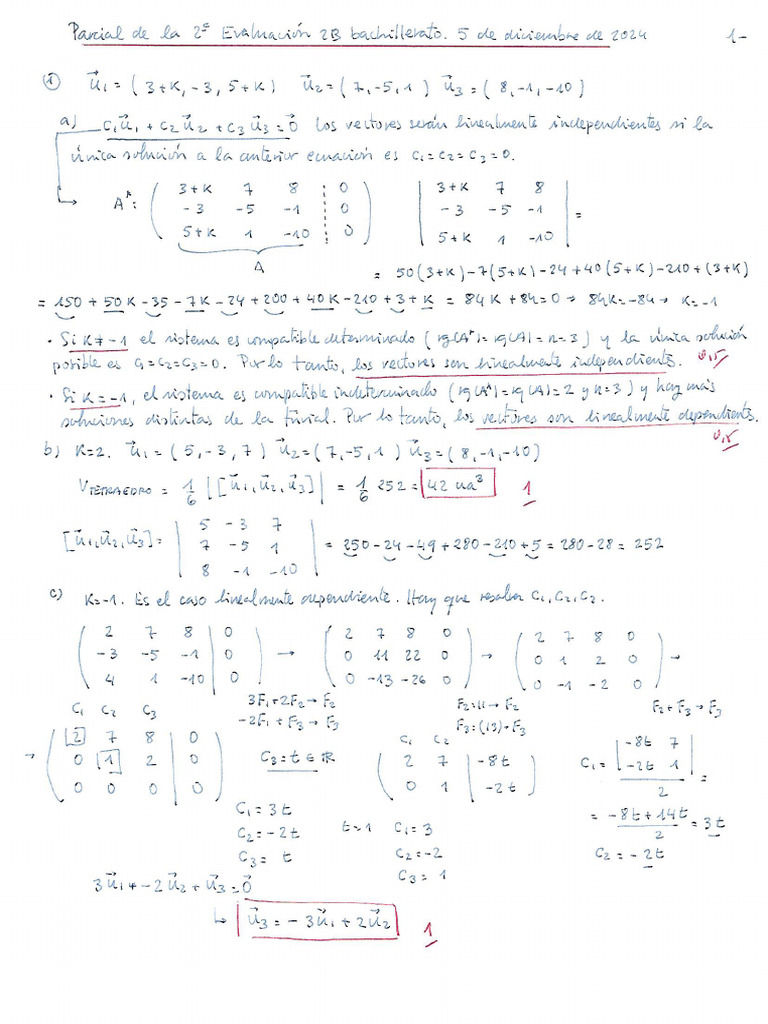 Parcial de la 2ª Evaluación 2B bachillerato. 5 de diciembre de 2024 1-
① u⃗1 = (3+K, -3, 5+K) u⃗2 = (7, -5, 1) u⃗3 = (8, -1, -10)
a) c1u⃗1 + c2u⃗2 + c3u⃗3 = 0⃗ Los vectores serán linealmente independientes si la
única solución a la anterior ecuación es c1 = c2 = c3 = 0.
A*: ( 3+K 7 8 ¦ 0 ) | 3+K 7 8 |
( -3 -5 -1 ¦ 0 ) | -3 -5 -1 | =
( 5+K 1 -10 ¦ 0 ) | 5+K 1 -10 |
A
= 50(3+K) - 7(5+K) - 24 + 40(5+K) - 210 + (3+K)
= 150 + 50K - 35 - 7K - 24 + 200 + 40K - 210 + 3 + K = 84K + 84 = 0 → 84K = -84 → K = -1
· Si K ≠ -1 el sistema es compatible determinado (rg(A*) = rg(A) = n = 3) y la única solución
posible es c1 = c2 = c3 = 0. Por lo tanto, los vectores son linealmente independientes. 0,5
· Si K = -1, el sistema es compatible indeterminado (rg(A*) = rg(A) = 2 y n = 3) y hay más
soluciones distintas de la trivial. Por lo tanto, los vectores son linealmente dependientes.
0,5
b) K = 2. u⃗1 = (5, -3, 7) u⃗2 = (7, -5, 1) u⃗3 = (8, -1, -10)
VTETRAEDRO = 1/6 |[u⃗1, u⃗2, u⃗3]| = 1/6 252 = 42 ua³ 1
| 5 -3 7 |
[u⃗1, u⃗2, u⃗3] = | 7 -5 1 | = 250 - 24 - 49 + 280 - 210 + 5 = 280 - 28 = 252
| 8 -1 -10 |
c) K = -1. Es el caso linealmente dependiente. Hay que resolver c1, c2, c2.
( 2 7 8 | 0 ) ( 2 7 8 0 ) ( 2 7 8 0 )
( -3 -5 -1 | 0 ) → ( 0 11 22 0 ) → ( 0 1 2 0 ) →
( 4 1 -10 | 0 ) ( 0 -13 -26 0 ) ( 0 -1 -2 0 )
3F1 + 2F2 → F2 F2 : 11 → F2 F2 + F3 → F3
-2F1 + F3 → F3 F3 : (13) → F3
c1 c2 c3
→ ( 2 7 8 | 0 ) c1 c2
( 0 1 2 | 0 ) c3 = t ∈ ℝ ( 2 7 | -8t ) c1 = | -8t 7 |
( 0 0 0 | 0 ) ( 0 1 | -2t ) | -2t 1 | / 2 =
c1 = 3t = (-8t + 14t) / 2 = 3t
c2 = -2t t = 1 c1 = 3
c3 = t c2 = -2 c2 = -2t
c3 = 1
3u⃗1 + -2u⃗2 + u⃗3 = 0⃗
↳ u⃗3 = -3u⃗1 + 2u⃗2 1